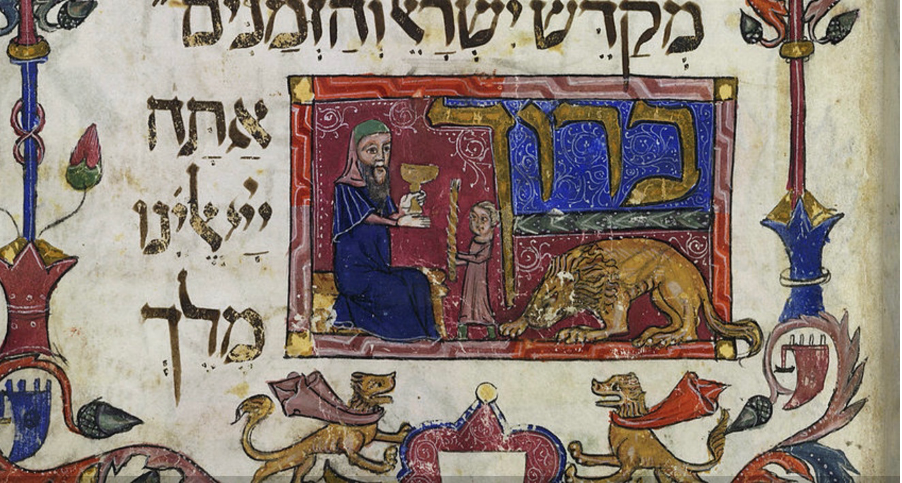 מְקַדֵשׁ יִשְׂרָאֵל וְהַזְמַנִים
ברוך אַתָּה
יְיָ אֱלֹהֵינוּ
מֶלֶךְ